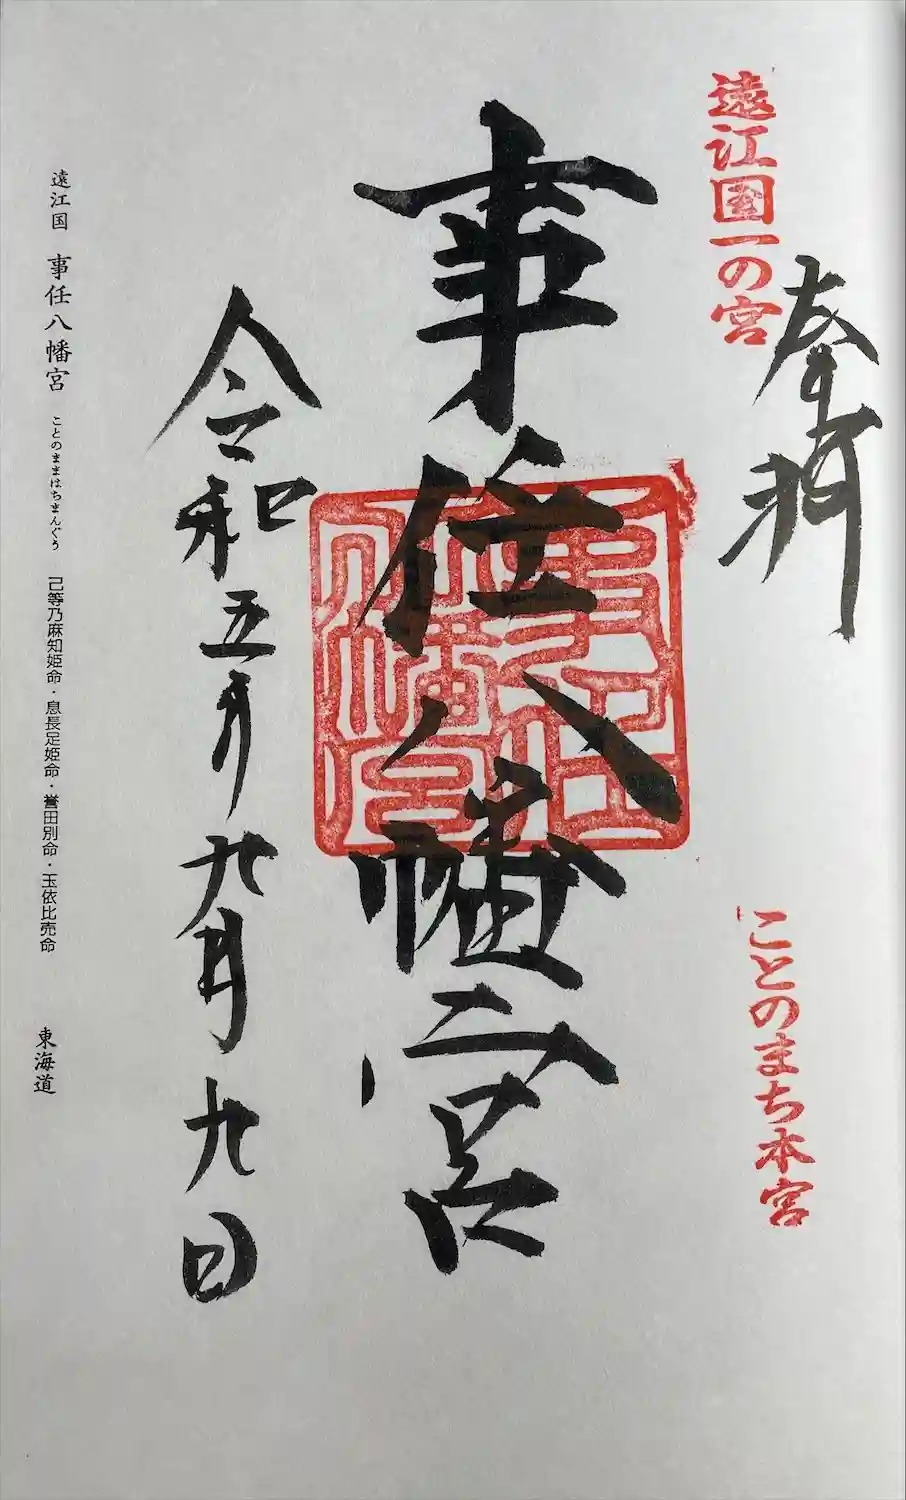 奉拝
遠江国一の宮
ことのまち本宮
事任八幡宮
事任八幡宮
令和五年九月九日
遠江国 事任八幡宮 ことのままはちまんぐう 己等乃麻知姫命・息長足姫命・誉田別命・玉依比売命 東海道